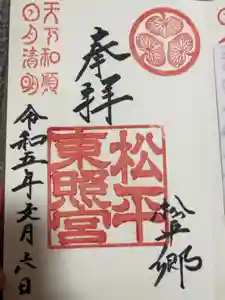 奉拝
松平郷
松平
東照宮
天下和順
日月清明
令和五年文月六日